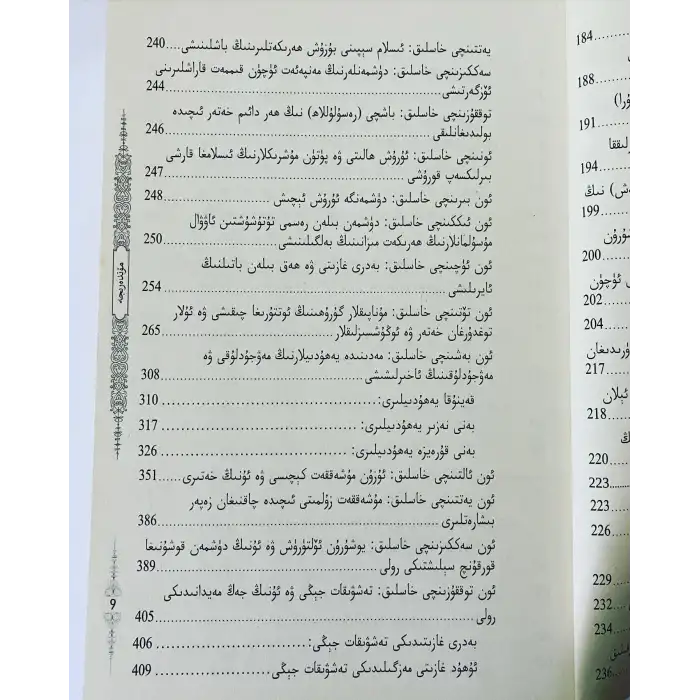 يەتتىنچى خاسلىق: ئىسلام سېپىنى بۇزۇش ھەرىكەتلىرىنىڭ باشلىنىشى....240
سەككىزىنچى خاسلىق: دۈشمەنلەرنىڭ مەنپەئەت ئۈچۈن قىممەت قاراشلىرىنى
ئۆزگەرتىشى...........................................244
توققۇزىنچى خاسلىق: باشچى (رەسۇلۇللاھ) نىڭ ھەر دائىم خەتەر ئىچىدە
بولىدىغانلىقى...........................................246
ئونىنچى خاسلىق: ئۇرۇش ھالىتى ۋە پۈتۈن مۇشرىكلارنىڭ ئىسلامغا قارشى
بىرلىكسەپ قۇرۇشى...........................................247
ئون بىرىنچى خاسلىق: دۈشمەنگە ئۇرۇش ئېچىش....................248
ئون ئىككىنچى خاسلىق: دۈشمەن بىلەن رەسمى تۇتۇشۇشتىن ئاۋۋال
مۇسۇلمانلارنىڭ ھەرىكەت مىزانىنىڭ بەلگىلىنىشى....................250
ئون ئۈچىنچى خاسلىق: بەدرى غازىتى ۋە ھەق بىلەن باتىلنىڭ
ئايرىلىشى...........................................254
ئون تۆتىنچى خاسلىق: مۇناپىقلار گۇرۇھىنىڭ ئوتتۇرىغا چىقىشى ۋە ئۇلار
توغدۇرغان خەتەر ۋە ئوڭۇشسىزلىقلار..............................265
ئون بەشىنچى خاسلىق: مەدىنىدە يەھۇدىيلارنىڭ مەۋجۇدلۇقى ۋە
مەۋجۇدلۇقىنىڭ ئاخىرلىشىشى..............................308
قەينۇقا يەھۇدىيلىرى:..............................310
بەنى نەزىر يەھۇدىيلىرى:..............................317
بەنى قۇرەيزە يەھۇدىيلىرى:..............................326
ئون ئالتىنچى خاسلىق: ئۇزۇن مۇشەققەت كېچىسى ۋە ئۇنىڭ خەتىرى.....351
ئون يەتتىنچى خاسلىق: مۇشەققەت زۇلمىتى ئىچىدە چاقنىغان زەپەر
بىشارەتلىرى...........................................386
ئون سەككىزىنچى خاسلىق: يوشۇرۇن ئۆلتۈرۈش ۋە ئۇنىڭ دۈشمەن قوشۇنىغا
قورقۇنچ سېلىشتىكى رولى..............................389
ئون توققۇزىنچى خاسلىق: تەشۋىقات جېڭى ۋە ئۇنىڭ جەڭ مەيدانىدىكى
رولى...........................................405
بەدرى غازىتىدىكى تەشۋىقات جېڭى:....................406
ئۇھۇد غازىتى مەزگىلىدىكى تەشۋىقات جېڭى....................409
مۇندەرىجە
9
184
188
191
194
نىڭ
199
200
ئۈچۈن
202
204
217
ئېلان
218
220
223
223
226
229
232
234
236